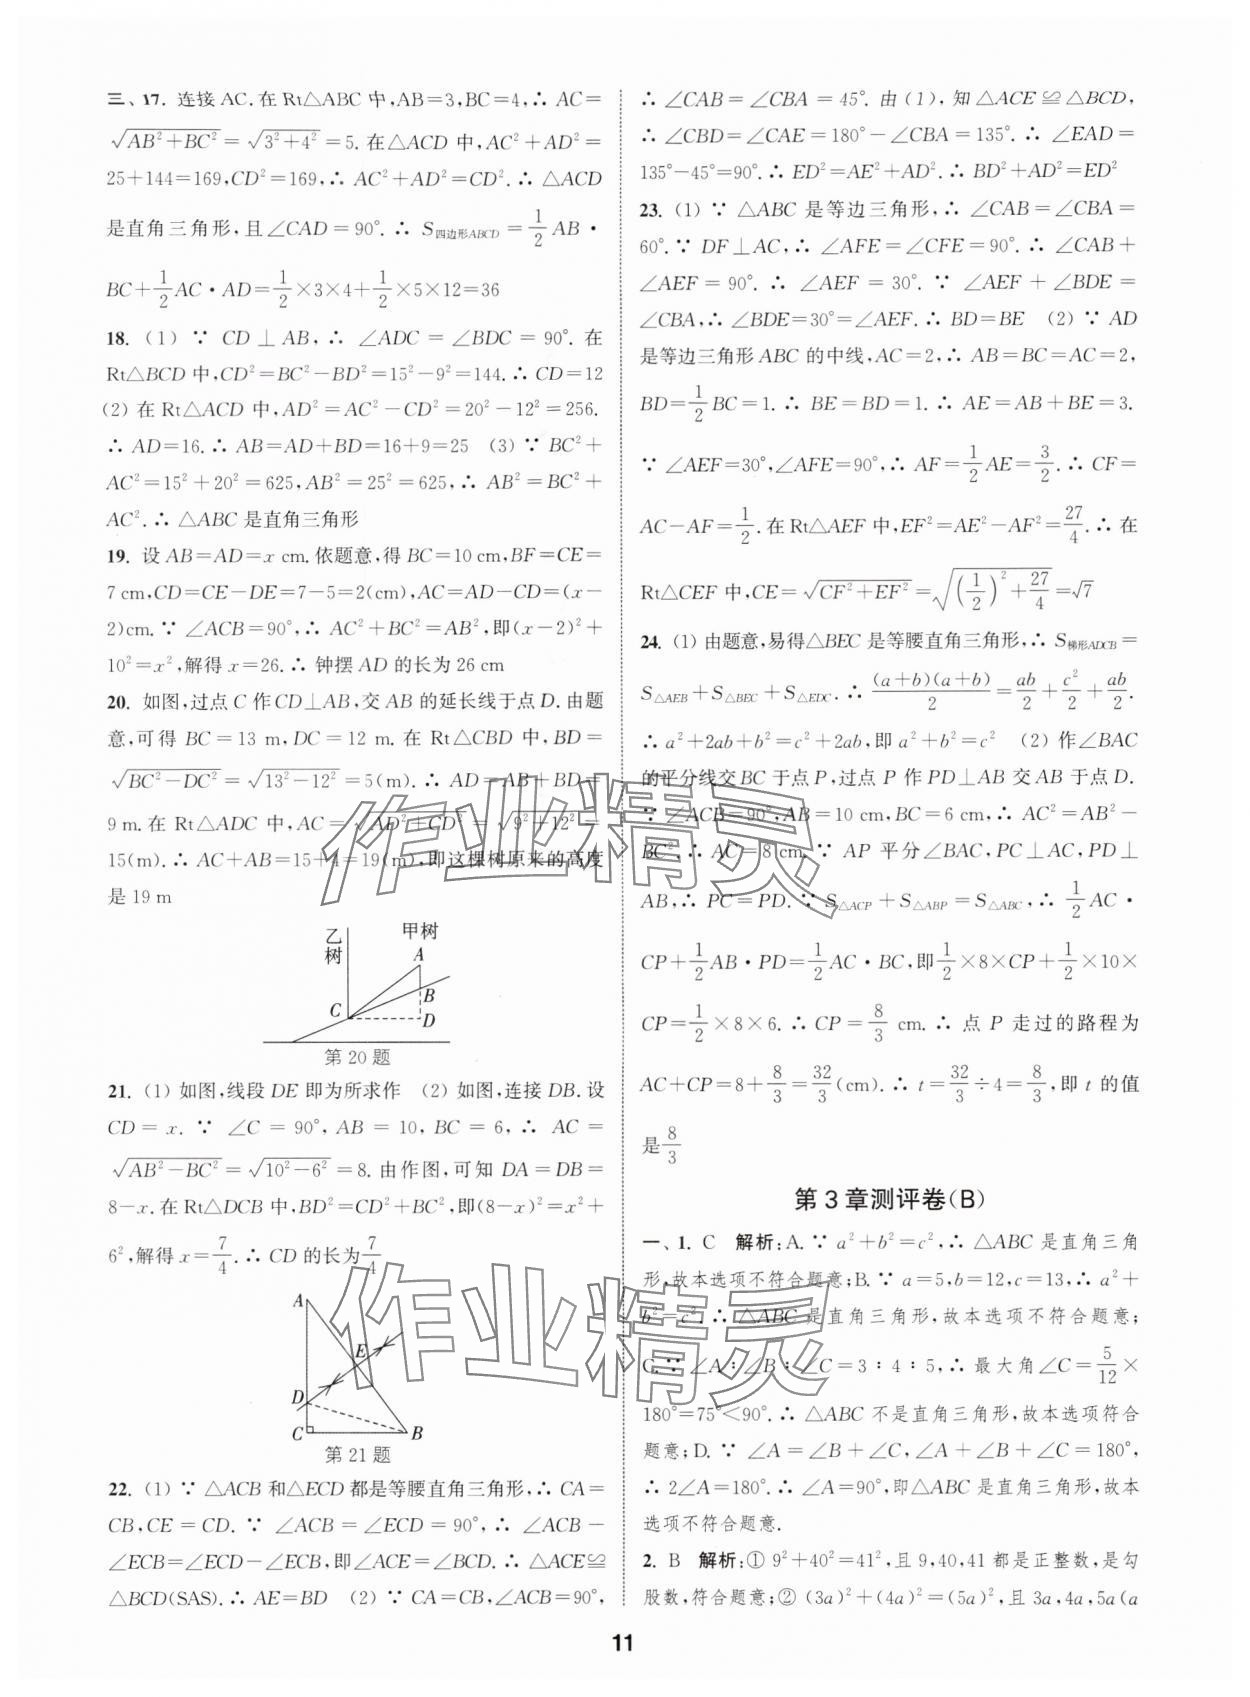 三、17. 连接 AC. 在 Rt△ABC 中,AB=3,BC=4,∴ AC=
√(AB²+BC²)=√(3²+4²)=5. 在△ACD 中,AC²+AD²=
25+144=169,CD²=169,∴ AC²+AD²=CD². ∴ △ACD
是直角三角形,且∠CAD=90°. ∴ S四边形ABCD=1/2 AB·
BC+1/2 AC·AD=1/2×3×4+1/2×5×12=36
18. (1) ∵ CD⊥AB,∴ ∠ADC=∠BDC=90°. 在
Rt△BCD 中,CD²=BC²-BD²=15²-9²=144. ∴ CD=12
(2) 在 Rt△ACD 中,AD²=AC²-CD²=20²-12²=256.
∴ AD=16. ∴ AB=AD+BD=16+9=25 (3) ∵ BC²+
AC²=15²+20²=625,AB²=25²=625,∴ AB²=BC²+
AC². ∴ △ABC 是直角三角形
19. 设 AB=AD=x cm. 依题意,得 BC=10 cm,BF=CE=
7 cm,CD=CE-DE=7-5=2(cm),AC=AD-CD=(x-
2)cm. ∵ ∠ACB=90°,∴ AC²+BC²=AB²,即(x-2)²+
10²=x²,解得 x=26. ∴ 钟摆 AD 的长为 26 cm
20. 如图,过点 C 作 CD⊥AB,交 AB 的延长线于点 D. 由题
意,可得 BC=13 m,DC=12 m. 在 Rt△CBD 中,BD=
√(BC²-DC²)=√(13²-12²)=5(m). ∴ AD=AB+BD=
9 m. 在 Rt△ADC 中,AC=√(AD²+CD²)=√(9²+12²)=
15(m). ∴ AC+AB=15+4=19(m),即这棵树原来的高度
是 19 m
乙树 甲树
A
B
C D
第 20 题
21. (1) 如图,线段 DE 即为所求作 (2) 如图,连接 DB. 设
CD=x. ∵ ∠C=90°,AB=10,BC=6,∴ AC=
√(AB²-BC²)=√(10²-6²)=8. 由作图,可知 DA=DB=
8-x. 在 Rt△DCB 中,BD²=CD²+BC²,即(8-x)²=x²+
6²,解得 x=7/4. ∴ CD 的长为7/4
A
E
D
C B
第 21 题
22. (1) ∵ △ACB 和△ECD 都是等腰直角三角形,∴ CA=
CB,CE=CD. ∵ ∠ACB=∠ECD=90°,∴ ∠ACB-
∠ECB=∠ECD-∠ECB,即∠ACE=∠BCD. ∴ △ACE≌
△BCD(SAS). ∴ AE=BD (2) ∵ CA=CB,∠ACB=90°,
∴ ∠CAB=∠CBA=45°. 由(1),知△ACE≌△BCD,
∴ ∠CBD=∠CAE=180°-∠CBA=135°. ∴ ∠EAD=
135°-45°=90°. ∴ ED²=AE²+AD². ∴ BD²+AD²=ED²
23. (1) ∵ △ABC 是等边三角形,∴ ∠CAB=∠CBA=
60°. ∵ DF⊥AC,∴ ∠AFE=∠CFE=90°. ∴ ∠CAB+
∠AEF=90°. ∴ ∠AEF=30°. ∵ ∠AEF+∠BDE=
∠CBA,∴ ∠BDE=30°=∠AEF. ∴ BD=BE (2) ∵ AD
是等边三角形 ABC 的中线,AC=2,∴ AB=BC=AC=2,
BD=1/2 BC=1. ∴ BE=BD=1. ∴ AE=AB+BE=3.
∵ ∠AEF=30°,∠AFE=90°. ∴ AF=1/2 AE=3/2. ∴ CF=
AC-AF=1/2. 在 Rt△AEF 中,EF²=AE²-AF²=27/4. ∴ 在
Rt△CEF 中,CE=√(CF²+EF²)=√((1/2)²+27/4)=√7
24. (1) 由题意,易得△BEC 是等腰直角三角形,∴ S梯形ADCB=
S△AEB+S△BEC+S△EDC. ∴ (a+b)(a+b)/2=ab/2+c²/2+ab/2.
∴ a²+2ab+b²=c²+2ab,即 a²+b²=c² (2) 作∠BAC
的平分线交 BC 于点 P,过点 P 作 PD⊥AB 交 AB 于点 D.
∵ ∠ACB=90°,AB=10 cm,BC=6 cm,∴ AC²=AB²-
BC². ∴ AC=8 cm. ∵ AP 平分∠BAC,PC⊥AC,PD⊥
AB,∴ PC=PD. ∵ S△ACP+S△ABP=S△ABC,∴ 1/2 AC·
CP+1/2 AB·PD=1/2 AC·BC,即1/2×8×CP+1/2×10×
CP=1/2×8×6. ∴ CP=8/3 cm. ∴ 点 P 走过的路程为
AC+CP=8+8/3=32/3(cm). ∴ t=32/3÷4=8/3,即 t 的值
是8/3
第 3 章测评卷(B)
一、1. C 解析:A. ∵ a²+b²=c²,∴ △ABC 是直角三角
形,故本选项不符合题意;B. ∵ a=5,b=12,c=13,∴ a²+
b²=c². ∴ △ABC 是直角三角形,故本选项不符合题意;
C. ∵ ∠A∶∠B∶∠C=3∶4∶5,∴ 最大角∠C=5/12×
180°=75°<90°. ∴ △ABC 不是直角三角形,故本选项符合
题意;D. ∵ ∠A=∠B+∠C,∠A+∠B+∠C=180°,
∴ 2∠A=180°. ∴ ∠A=90°,即△ABC 是直角三角形,故本
选项不符合题意.
2. B 解析:① 9²+40²=41²,且 9,40,41 都是正整数,是勾
股数,符合题意;② (3a)²+(4a)²=(5a)²,且 3a,4a,5a(a
11
作业精灵
作业精灵